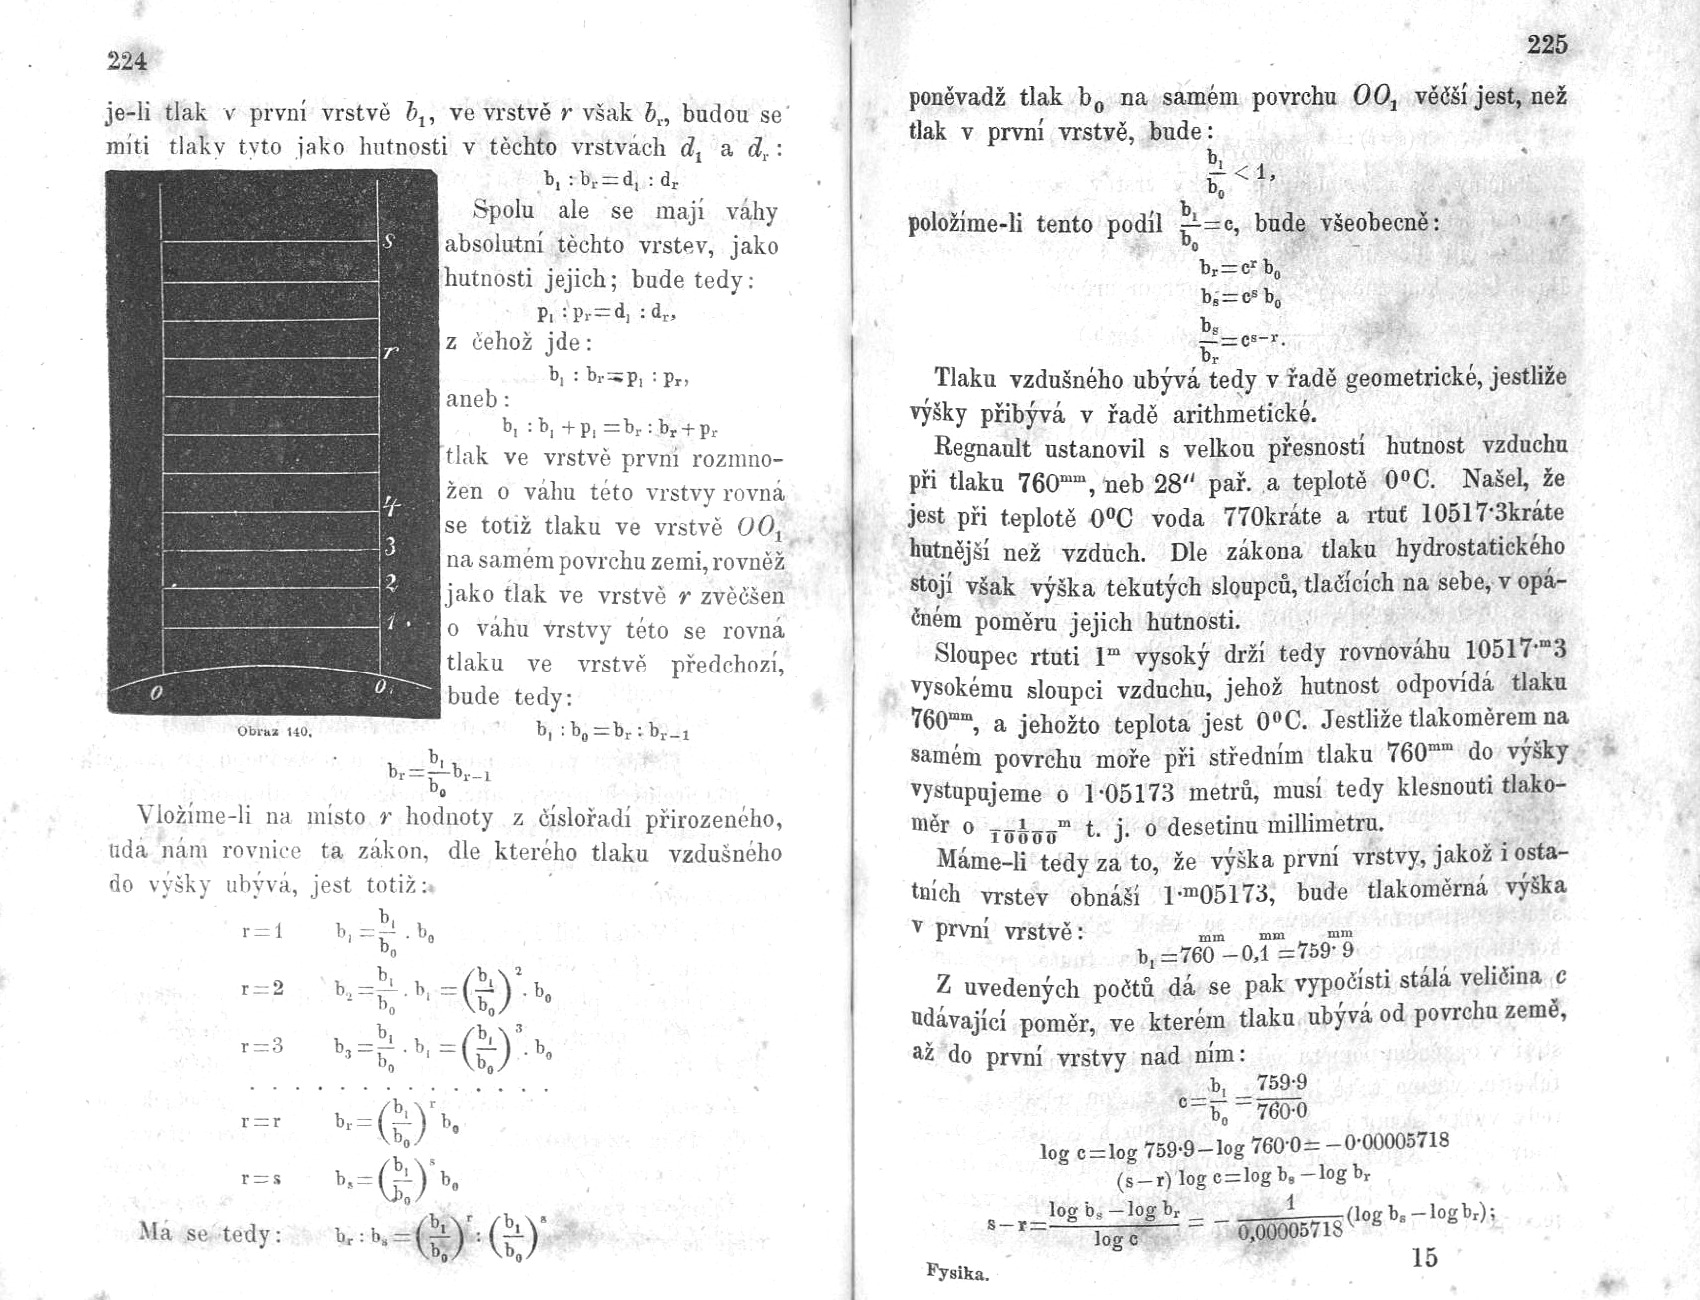 224
je-li tlak v první vrstvě b₁, ve vrstvě r však bᵣ, budou se
míti tlaky tyto jako hutnosti v těchto vrstvách d₁ a dᵣ:
b₁ : bᵣ = d₁ : dᵣ
Spolu ale se mají váhy
absolutní těchto vrstev, jako
hutnosti jejich; bude tedy:
p₁ : pᵣ = d₁ : dᵣ,
z čehož jde:
b₁ : bᵣ = p₁ : pᵣ,
aneb:
b₁ : b₁ + p₁ = bᵣ : bᵣ + pᵣ
tlak ve vrstvě první rozmno-
žen o váhu této vrstvy rovná
se totiž tlaku ve vrstvě OO₁
na samém povrchu zemi, rovněž
jako tlak ve vrstvě r zvěčšen
o váhu vrstvy této se rovná
tlaku ve vrstvě předchozí,
bude tedy:
b₁ : b₀ = bᵣ : bᵣ₋₁
s
r
4
3
2
1
O
O₁
Obraz 140.
bᵣ = b₁/b₀ bᵣ₋₁
Vložíme-li na místo r hodnoty z číslořadí přirozeného,
udá nám rovnice ta zákon, dle kterého tlaku vzdušného
do výšky ubývá, jest totiž:
r=1 b₁ = b₁/b₀ . b₀
r=2 b₂ = b₁/b₀ . b₁ = (b₁/b₀)² . b₀
r=3 b₃ = b₁/b₀ . b₁ = (b₁/b₀)³ . b₀
. . . . . . . . . . . . . . . .
r=r bᵣ = (b₁/b₀)ʳ b₀
r=s bₛ = (b₁/b₀)ˢ b₀
Má se tedy: bᵣ : bₛ = (b₁/b₀)ʳ : (b₁/b₀)ˢ
225
poněvadž tlak b₀ na samém povrchu OO₁ věčší jest, než
tlak v první vrstvě, bude:
b₁/b₀ < 1,
položíme-li tento podíl b₁/b₀ = c, bude všeobecně:
bᵣ = cʳ b₀
bₛ = cˢ b₀
bₛ/bᵣ = cˢ⁻ʳ.
Tlaku vzdušného ubývá tedy v řadě geometrické, jestliže
výšky přibývá v řadě arithmetické.
Regnault ustanovil s velkou přesností hutnost vzduchu
při tlaku 760ᵐᵐ, neb 28″ pař. a teplotě 0⁰C. Našel, že
jest při teplotě 0⁰C voda 770kráte a rtuť 10517·3kráte
hutnější než vzduch. Dle zákona tlaku hydrostatického
stojí však výška tekutých sloupců, tlačících na sebe, v opá-
čném poměru jejich hutnosti.
Sloupec rtuti 1ᵐ vysoký drží tedy rovnováhu 10517·ᵐ3
vysokému sloupci vzduchu, jehož hutnost odpovídá tlaku
760ᵐᵐ, a jehožto teplota jest 0⁰C. Jestliže tlakoměrem na
samém povrchu moře při středním tlaku 760ᵐᵐ do výšky
vystupujeme o 1·05173 metrů, musí tedy klesnouti tlako-
měr o 1/10000ᵐ t. j. o desetinu millimetru.
Máme-li tedy za to, že výška první vrstvy, jakož i osta-
tních vrstev obnáší 1·ᵐ05173, bude tlakoměrná výška
v první vrstvě:
b₁ = 760ᵐᵐ − 0,1ᵐᵐ = 759·9ᵐᵐ
Z uvedených počtů dá se pak vypočísti stálá veličina c
udávající poměr, ve kterém tlaku ubývá od povrchu země,
až do první vrstvy nad ním:
c = b₁/b₀ = 759·9/760·0
log c = log 759·9 − log 760·0 = − 0·00005718
(s − r) log c = log bₛ − log bᵣ
s − r = (log bₛ − log bᵣ)/log c = − 1/0,00005718 (log bₛ − log bᵣ);
Fysika.
15